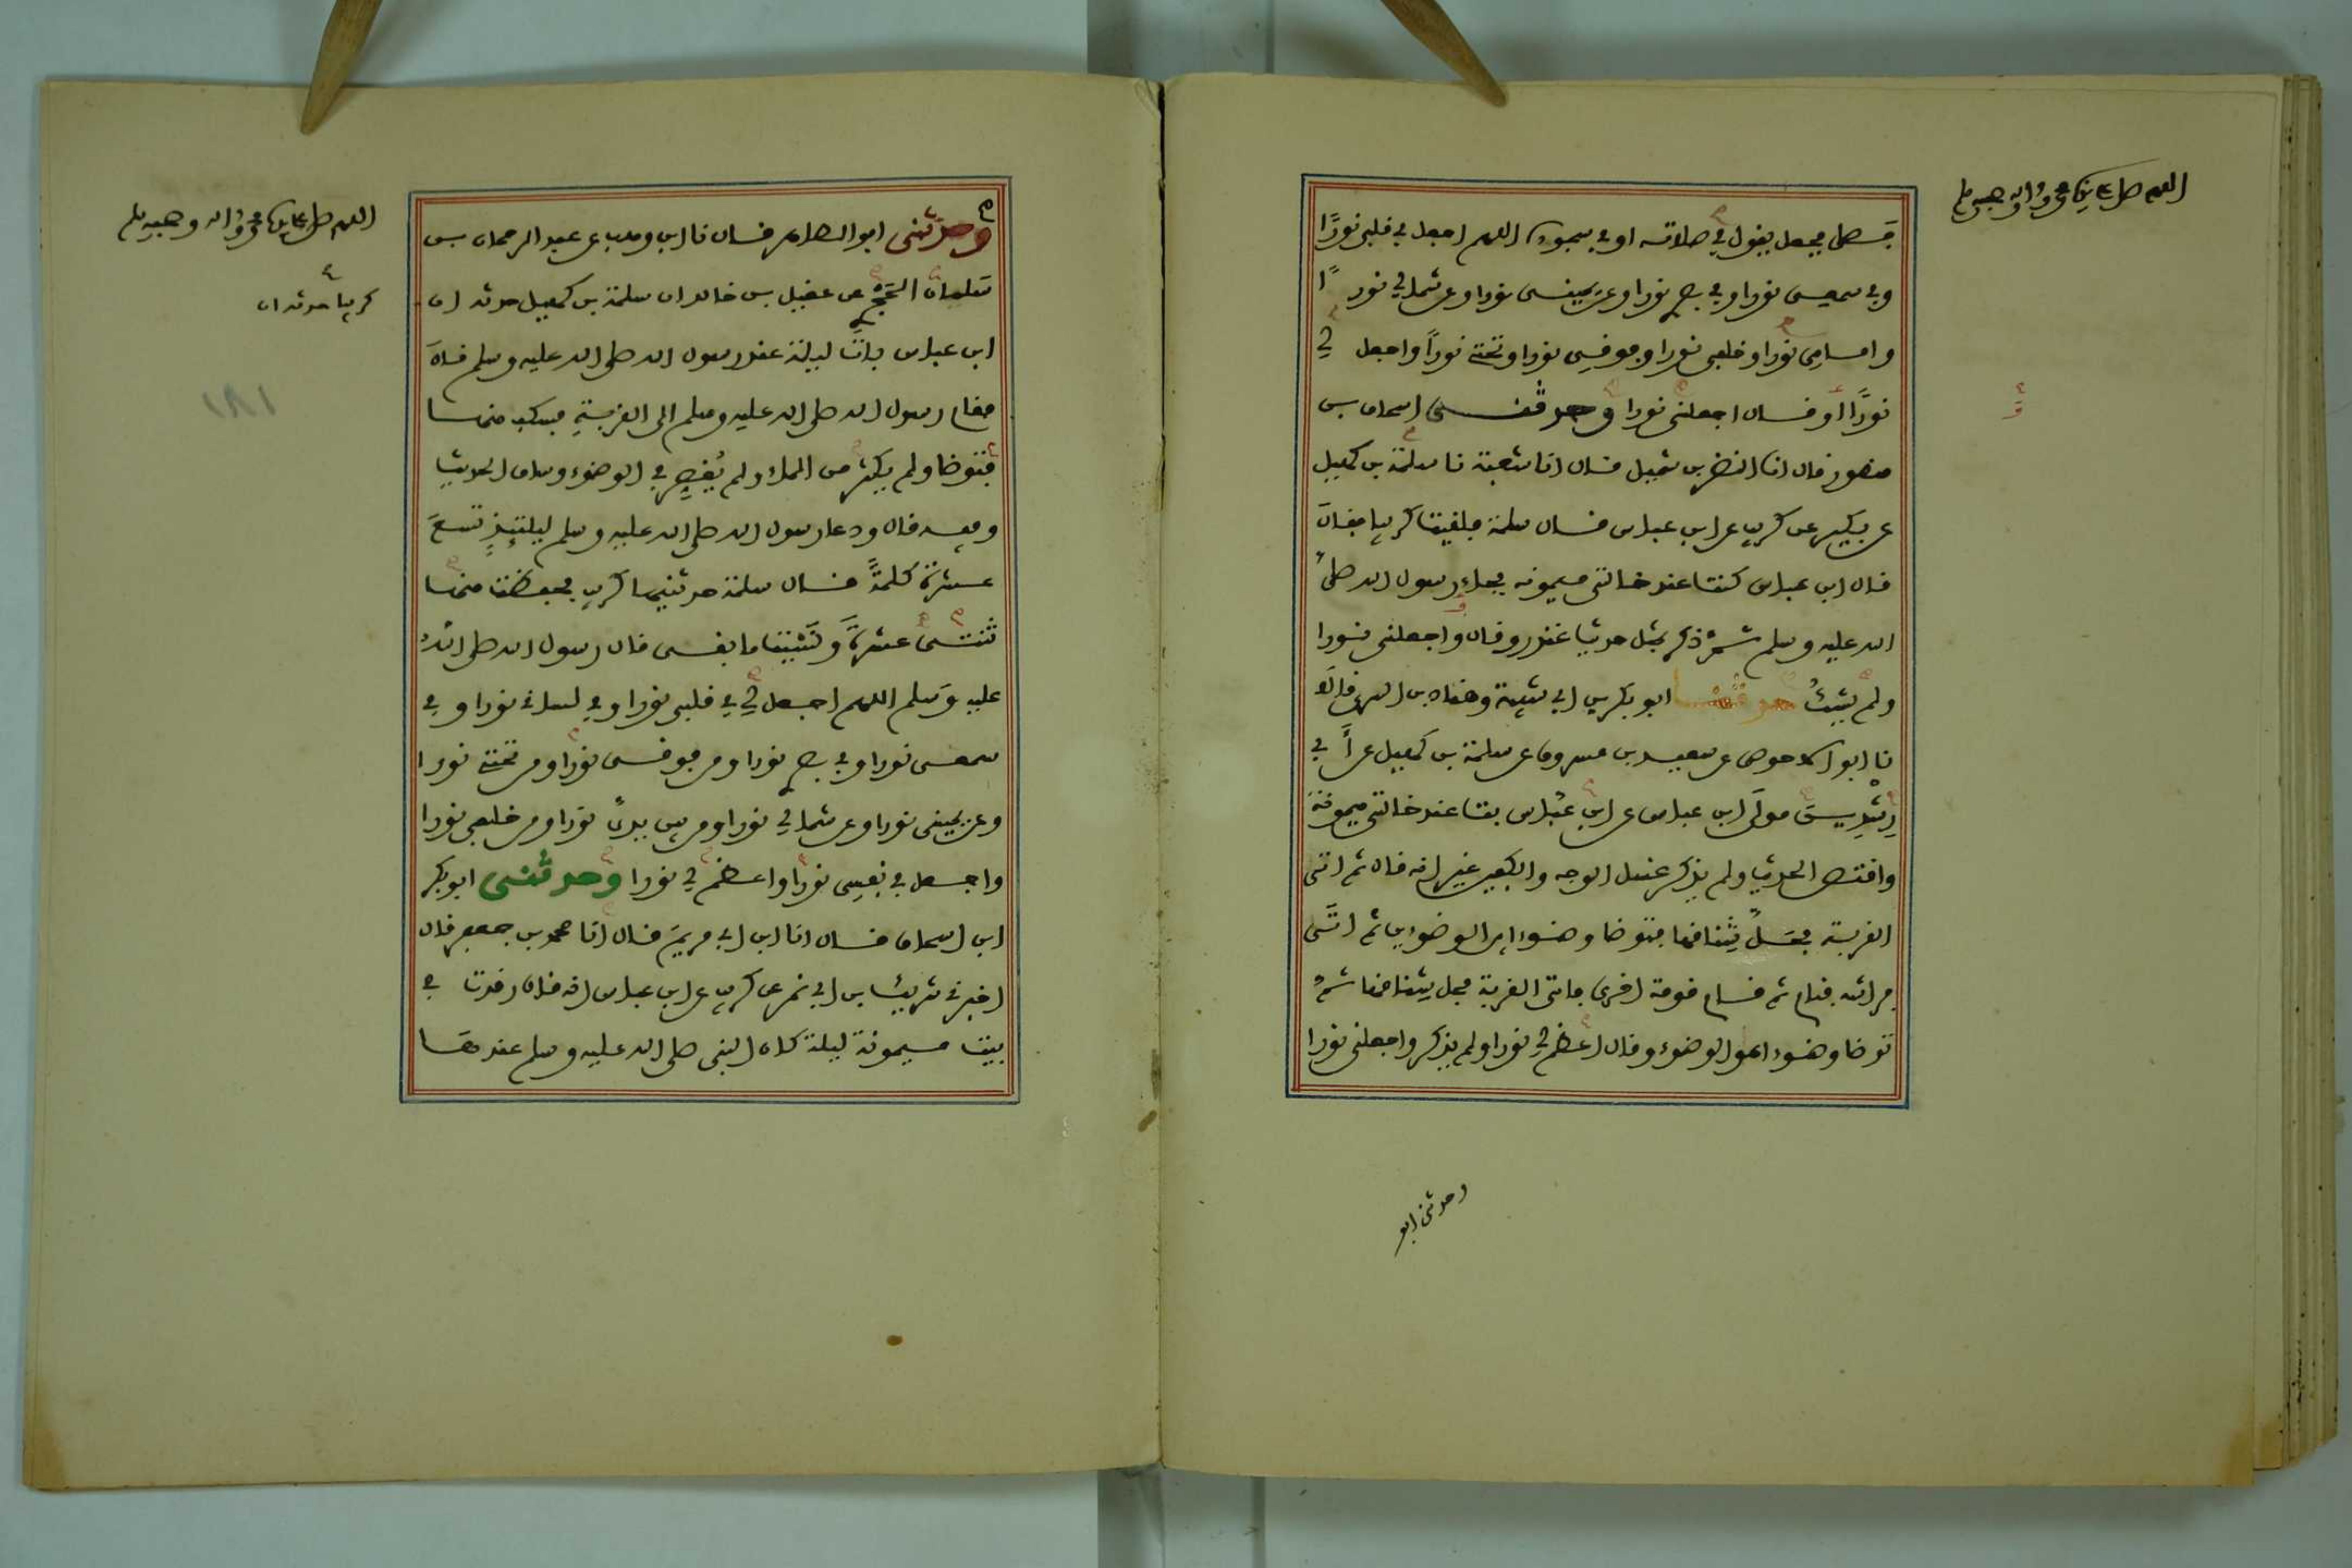 اللهم صل على سيدنا محمد وءاله وصحبه وسلم
فصلى فجعل يقول في صلاته او في سجوده اللهم اجعل في قلبي نورًا
وفي سمعي نورا وفي بصري نورا وعن يميني نورا وعن شمالي نورًا
وامامي نورا وخلفي نورا وفوقي نورا وتحتي نورًا واجعل لي
نورًا أو قال اجعلني نورا وحدثني اسحاق بن
منصور قال انا النضر بن شميل قال انا شعبة نا سلمة بن كهيل
عن بكير عن كريب عن ابن عباس قال سلمة فلقيت كريبا فقال
قال ابن عباس كنت عند خالتي ميمونه فجاء رسول الله صلى
الله عليه وسلم ثم ذكر بمثل حديث غندر وقال واجعلني نورا
ولم يشك حدثنا ابو بكر بن ابي شيبة وهناد بن السري قالا
نا ابو الاحوص عن سعيد بن مسروق عن سلمة بن كهيل عن أبي
رِشْدِين مولى ابن عباس عن ابن عباس بت عند خالتي ميمونة
واقتص الحديث ولم يذكر غسل الوجه والكفين غير انه قال ثم اتى
القربة فحل شناقها فتوضا وضوءا بين الوضوءين ثم اتى
فراشه فنام ثم قام قومة اخرى فاتى القربة فحل شناقها ثم
توضا وضوءا هو الوضوء وقال اعظم لي نورا ولم يذكر واجعلني نورا
وحدثني ابو
اللهم صل على سيدنا محمد وءاله وصحبه وسلم
وحدثني ابو الطاهر قال نا ابن وهب عن عبد الرحمان بن
سلمان الحجري عن عقيل بن خالد ان سلمة بن كهيل حدثه ان
كريبا حدثه ان
ابن عباس بات ليلة عند رسول الله صلى الله عليه وسلم قال
فقام رسول الله صلى الله عليه وسلم الى القربة فسكب منها
فتوضا ولم يكثر من الماء ولم يُقصِر في الوضوء وساق الحديث
وفيه قال ودعا رسول الله صلى الله عليه وسلم ليلتئذٍ تسع
عشرة كلمةً قال سلمة حدثنيها كريب فحفظت منها
ثنتي عشرةَ ونسيت ما بقي قال رسول الله صلى الله
عليه وسلم اللهم اجعل لي في قلبي نورا وفي لساني نورا وفي
سمعي نورا وفي بصري نورا ومن فوقي نورا ومن تحتي نورا
وعن يميني نورا وعن شمالي نورا ومن بين يدي نورا ومن خلفي نورا
واجعل في نفسي نورا واعظم لي نورا وحدثني ابو بكر
ابن اسحاق قال انا ابن ابي مريم قال انا محمد بن جعفر قال
اخبرني شريك بن ابي نمر عن كريب عن ابن عباس انه قال رقدت في
بيت ميمونة ليلة كان النبي صلى الله عليه وسلم عندها
١٨١